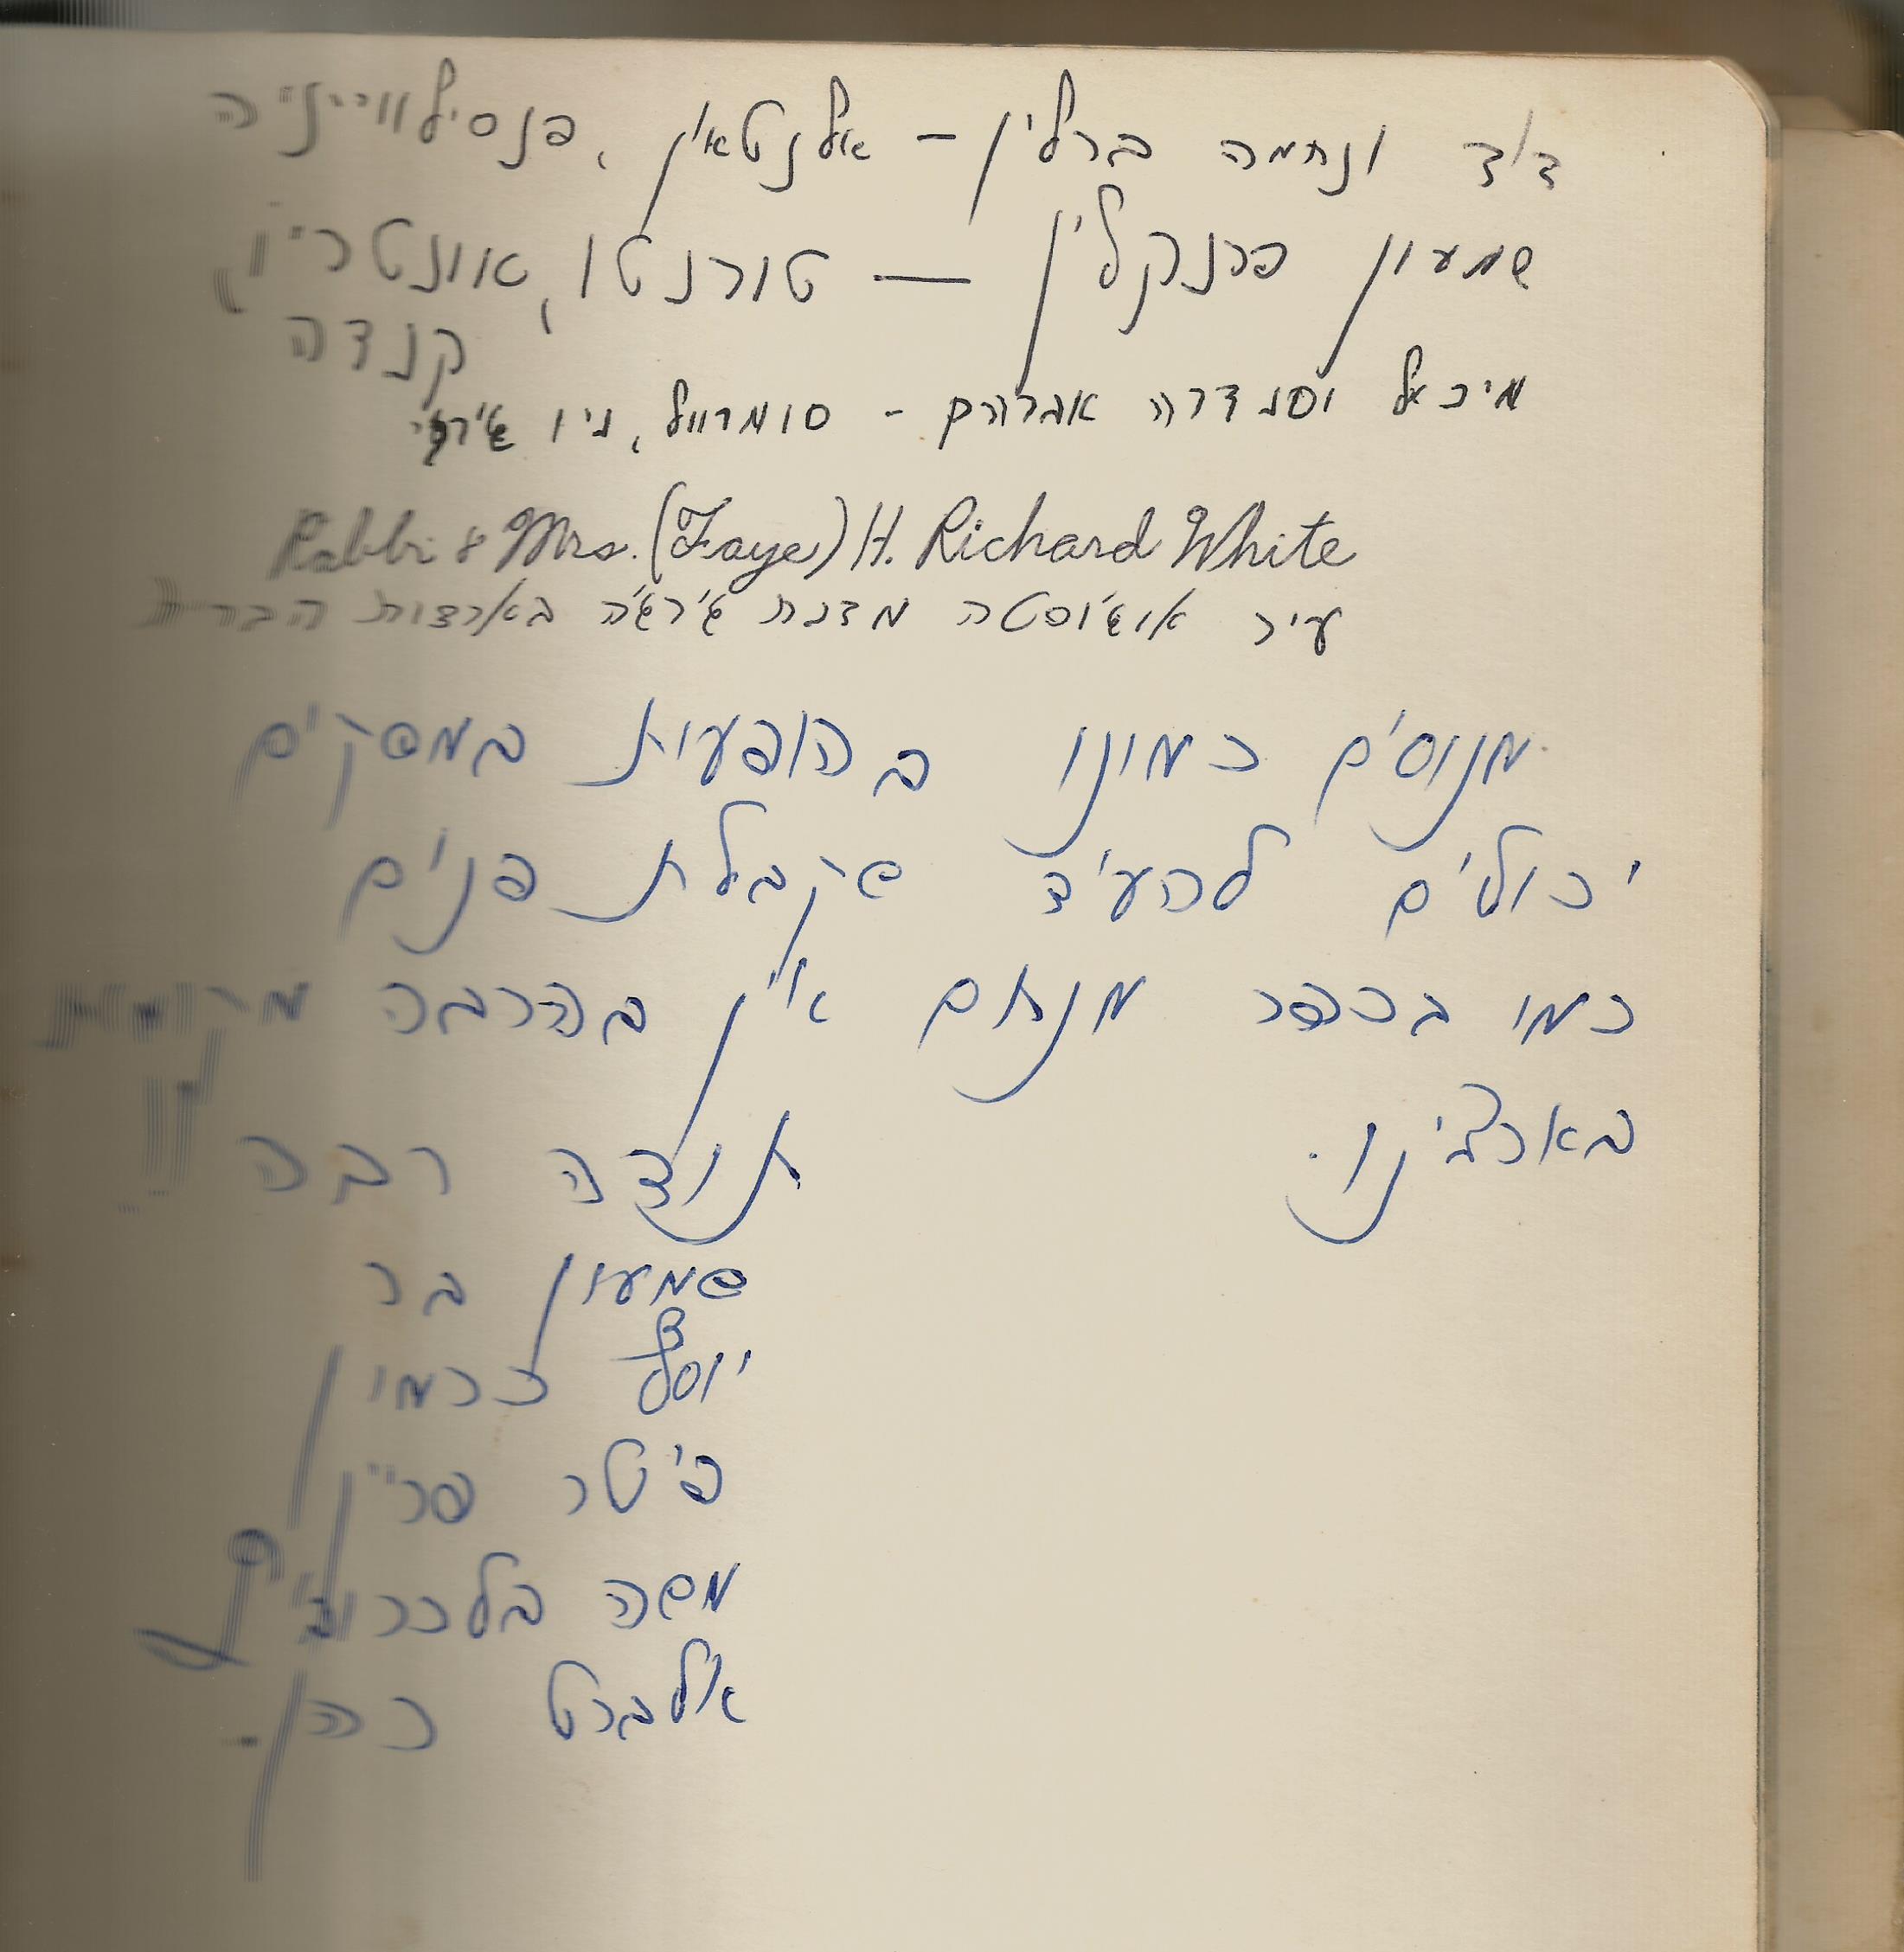 דוד ונחמה ברלין – אלנטאון, פנסילווייניה
שמעון פרנקלין — טורנטו, אונטריו,
קנדה
מיכאל וסנדרה אברהם - סומרוויל, ניו
Rabbi & Mrs. (Faye) H. Richard White
עיר אוגוסטה מדנת ג'רג'ה בארצות הברית
מנוסים כמונו בהופעות במסקים
יכולים להעיד שקבלת פנים
כמו בכפר מנחם אין בהרבה מקומות
בארצינו. תודה רבה
שמעון בר
יוסף כרמון
פיטר פריין
משה
אלברט כהן.